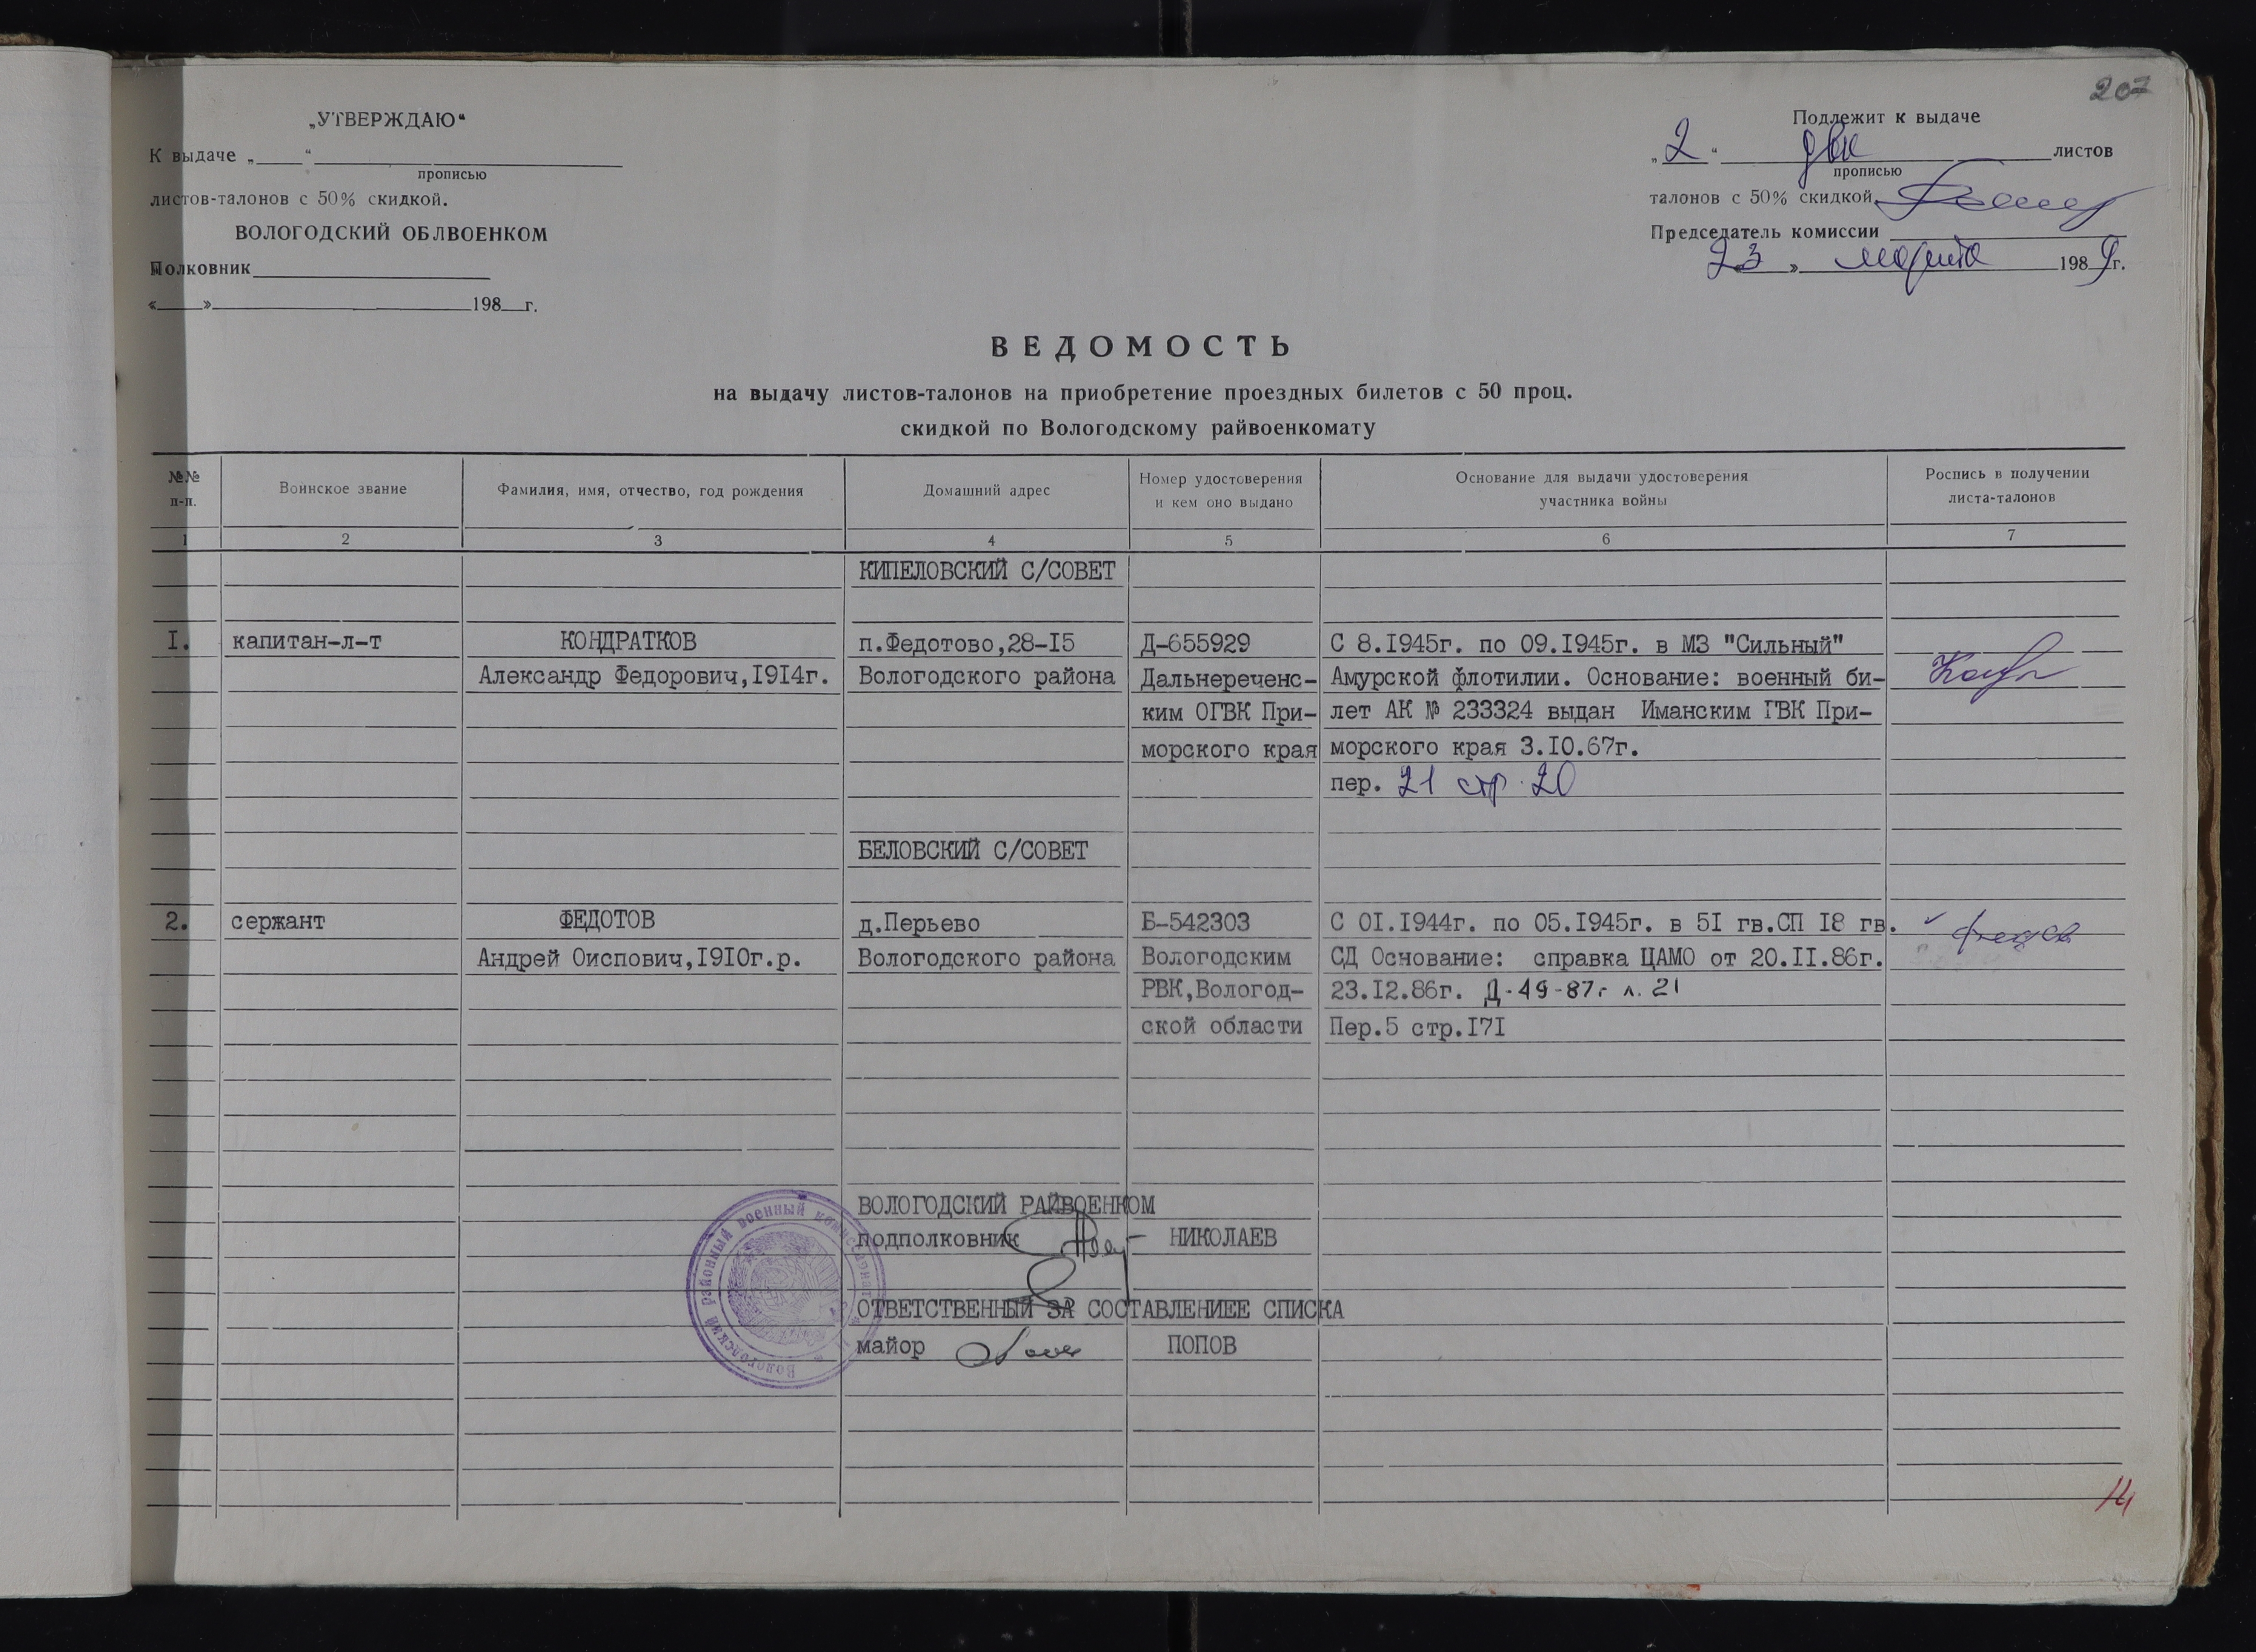 207
„УТВЕРЖДАЮ“
К выдаче „____“
прописью
листов-талонов с 50% скидкой.
ВОЛОГОДСКИЙ ОБЛВОЕНКОМ
Полковник
«____» 198__г.
Подлежит к выдаче
„2“ два листов
прописью
талонов с 50% скидкой
Председатель комиссии
23 » марта 1989г.
ВЕДОМОСТЬ
на выдачу листов-талонов на приобретение проездных билетов с 50 проц.
скидкой по Вологодскому райвоенкомату
№№ п-п. Воинское звание Фамилия, имя, отчество, год рождения Домашний адрес Номер удостоверения и кем оно выдано Основание для выдачи удостоверения участника войны Роспись в получении листа-талонов
1 2 3 4 5 6 7
КИПЕЛОВСКИЙ С/СОВЕТ
I. капитан-л-т КОНДРАТКОВ п.Федотово,28-I5 Д-655929 С 8.I945г. по 09.I945г. в МЗ "Сильный"
Александр Федорович,I9I4г. Вологодского района Дальнереченс- Амурской флотилии. Основание: военный би-
ким ОГВК При- лет АК № 233324 выдан Иманским ГВК При-
морского края морского края 3.I0.67г.
пер. 21 стр. 20
БЕЛОВСКИЙ С/СОВЕТ
2. сержант ФЕДОТОВ д.Перьево Б-542303 С 0I.I944г. по 05.I945г. в 5I гв.СП I8 гв.
Андрей Оиспович,I9I0г.р. Вологодского района Вологодским СД Основание: справка ЦАМО от 20.II.86г.
РВК,Вологод- 23.I2.86г. Д-49-87г л. 21
ской области Пер.5 стр.I7I
ВОЛОГОДСКИЙ РАЙВОЕНКОМ
подполковник НИКОЛАЕВ
ОТВЕТСТВЕННЫЙ ЗА СОСТАВЛЕНИЕЕ СПИСКА
майор ПОПОВ
Вологодский районный военный комиссариат
14